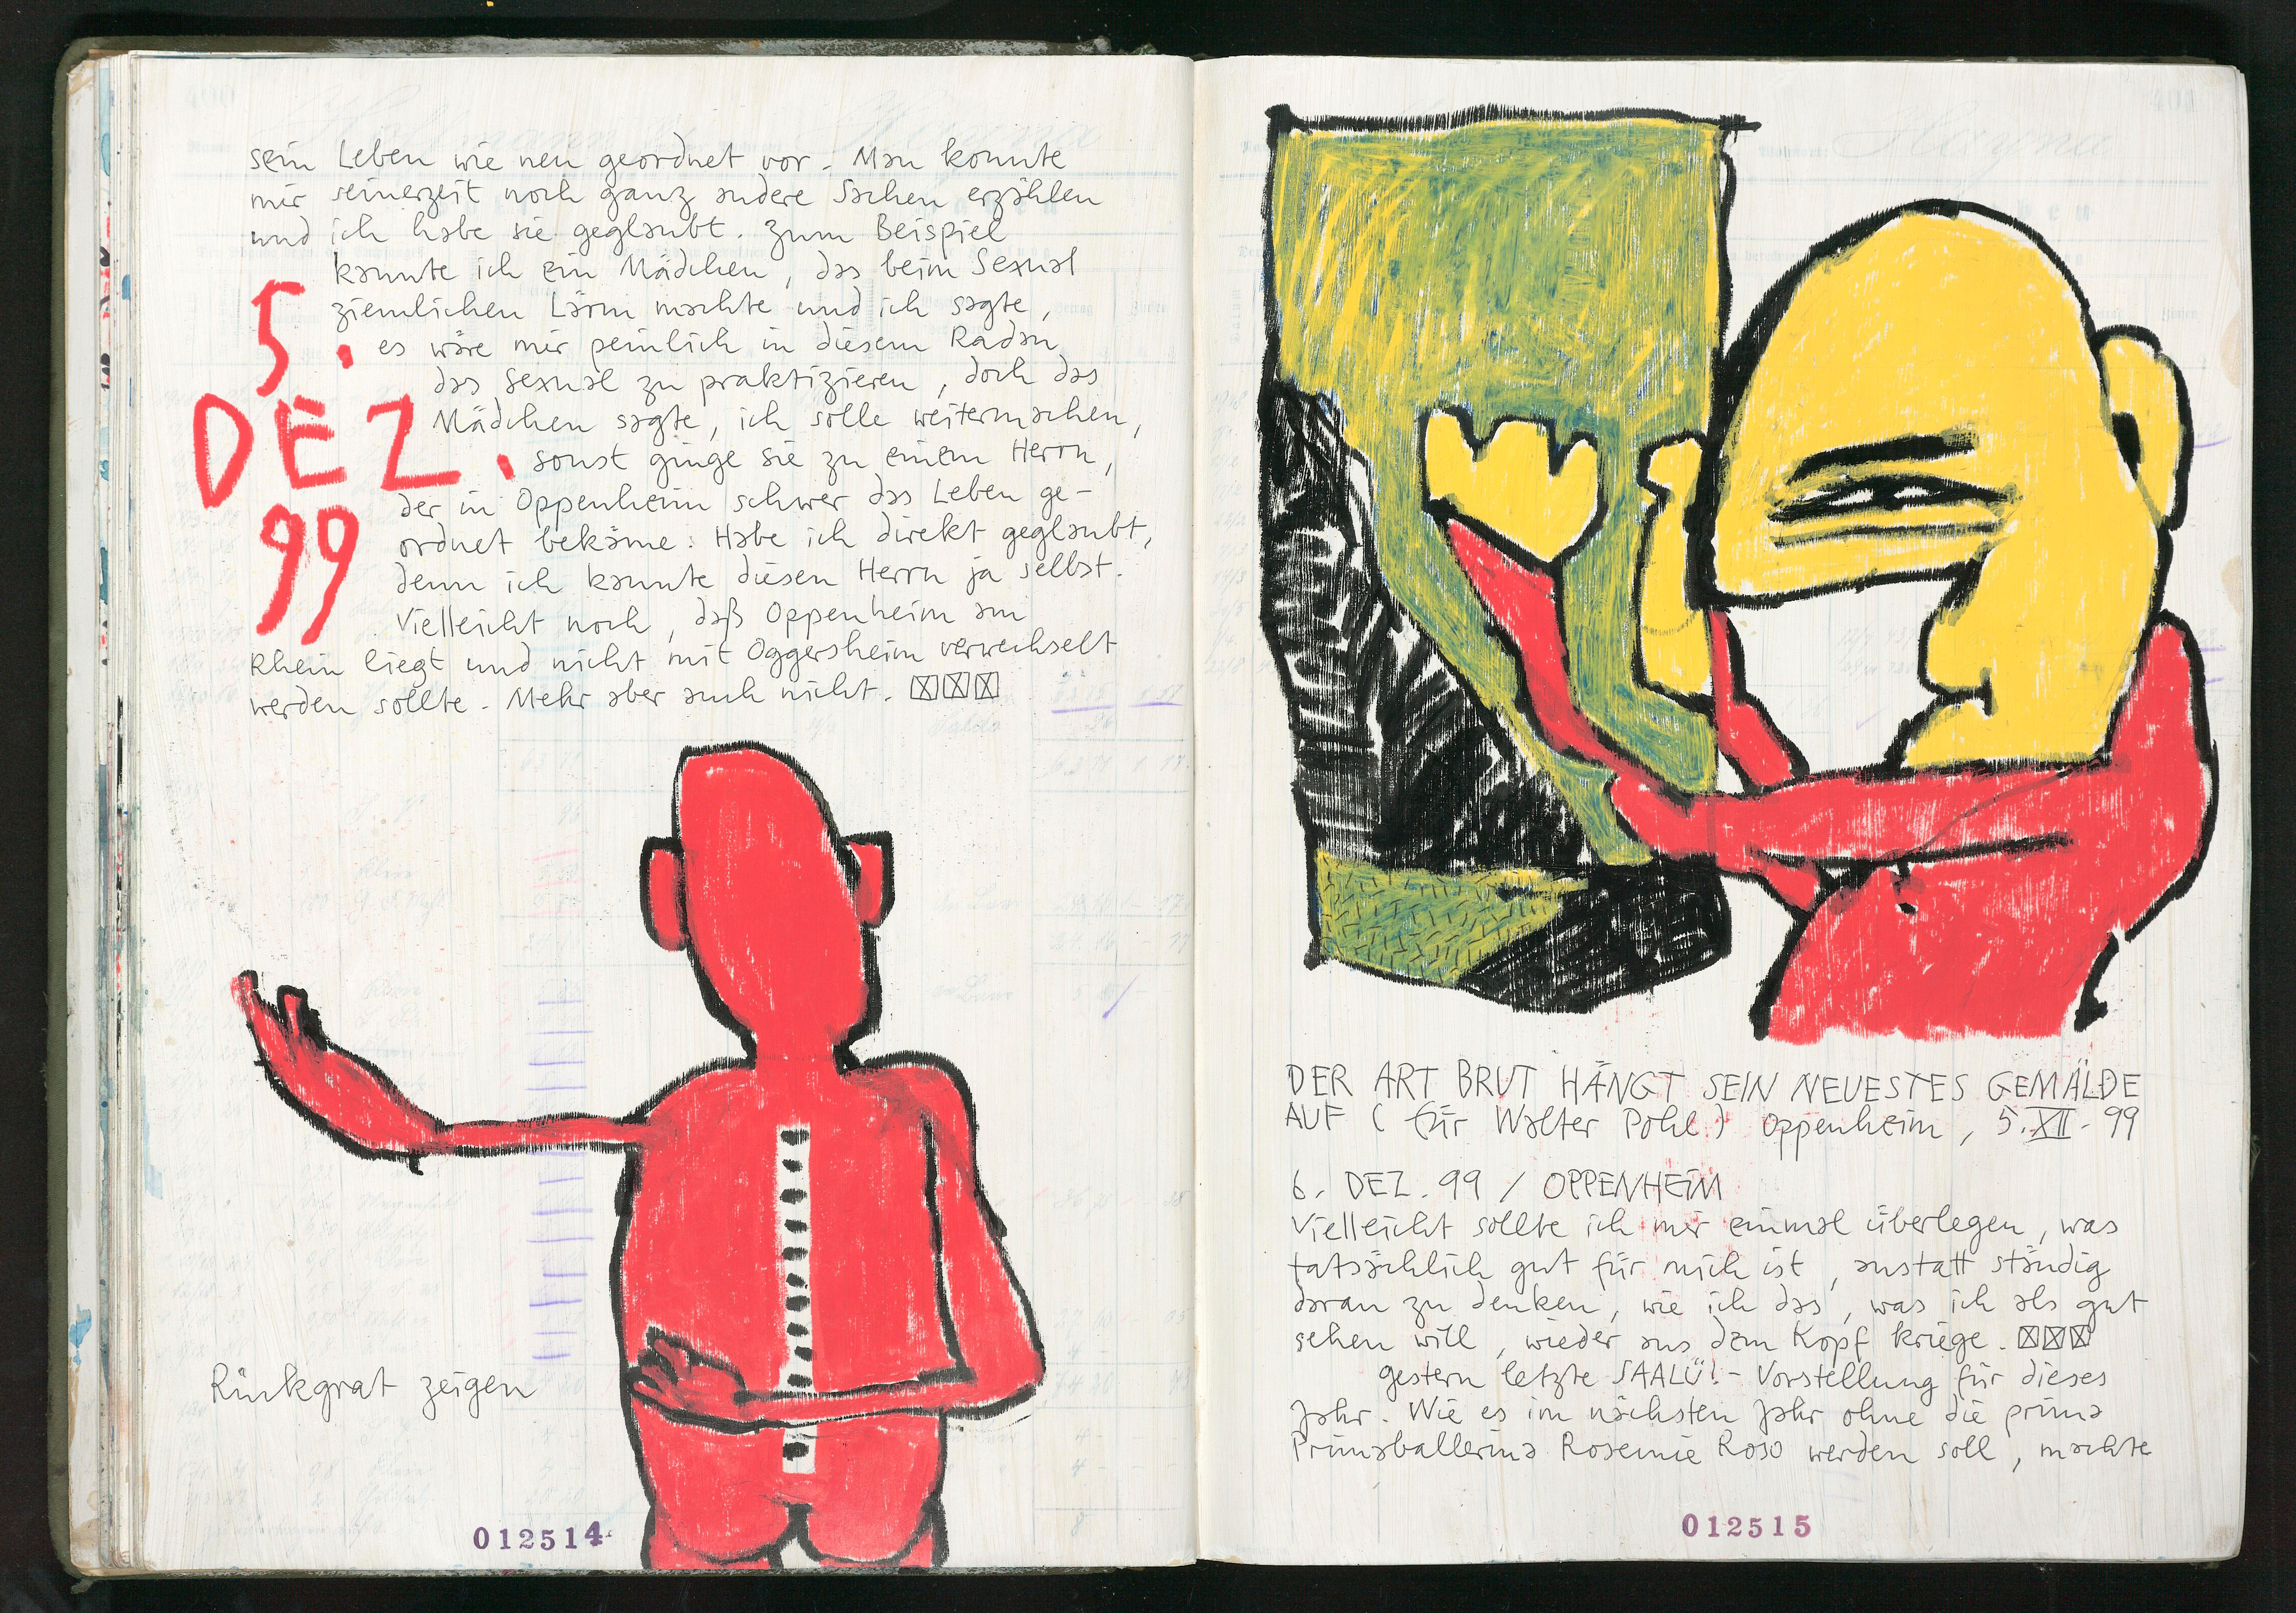 sein Leben wie neu geordnet vor. Man konnte
mir seinerzeit noch ganz andere Sachen erzählen
und ich habe sie geglaubt. Zum Beispiel
kannte ich ein Mädchen, das beim Sexual
ziemlichen Lärm machte und ich sagte,
es wäre mir peinlich in diesem Radau
das Sexual zu praktizieren, doch das
Mädchen sagte, ich solle weitermachen,
sonst ginge sie zu einem Herrn,
der in Oppenheim schwer das Leben ge-
ordnet bekäme. Habe ich direkt geglaubt,
denn ich kannte diesen Herrn ja selbst.
Vielleicht noch, daß Oppenheim am
Rhein liegt und nicht mit Oggersheim verwechselt
werden sollte. Mehr aber auch nicht.
5.
DEZ.
99
Rückgrat zeigen
012514
DER ART BRUT HÄNGT SEIN NEUESTES GEMÄLDE
AUF (für Walter Pohl) Oppenheim, 5.XII.99
6. DEZ. 99 / OPPENHEIM
Vielleicht sollte ich mir einmal überlegen, was
tatsächlich gut für mich ist, anstatt ständig
daran zu denken, wie ich das, was ich als gut
sehen will, wieder aus dem Kopf kriege.
gestern letzte SAALÜ!-Vorstellung für dieses
Jahr. Wie es im nächsten Jahr ohne die prima
Primaballerina Rosemie Roso werden soll, machte
012515